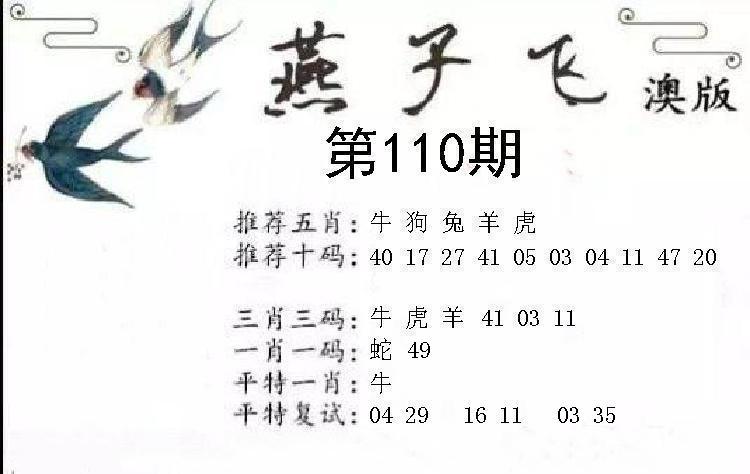 燕子飞 澳版
第110期
推荐五肖: 牛 狗 兔 羊 虎
推荐十码: 40 17 27 41 05 03 04 11 47 20
三肖三码: 牛 虎 羊 41 03 11
一肖一码: 蛇 49
平特一肖: 牛
平特复试: 04 29 16 11 03 35